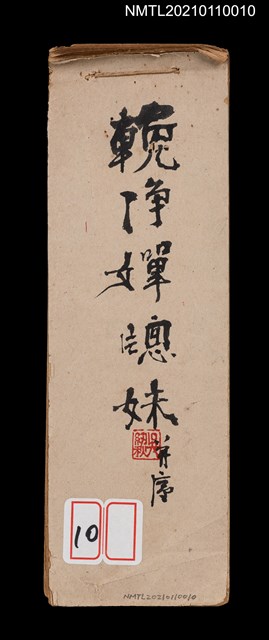 NMTL20210110010
輓淨嬋憁妹
并序
10
NMTL20210110010